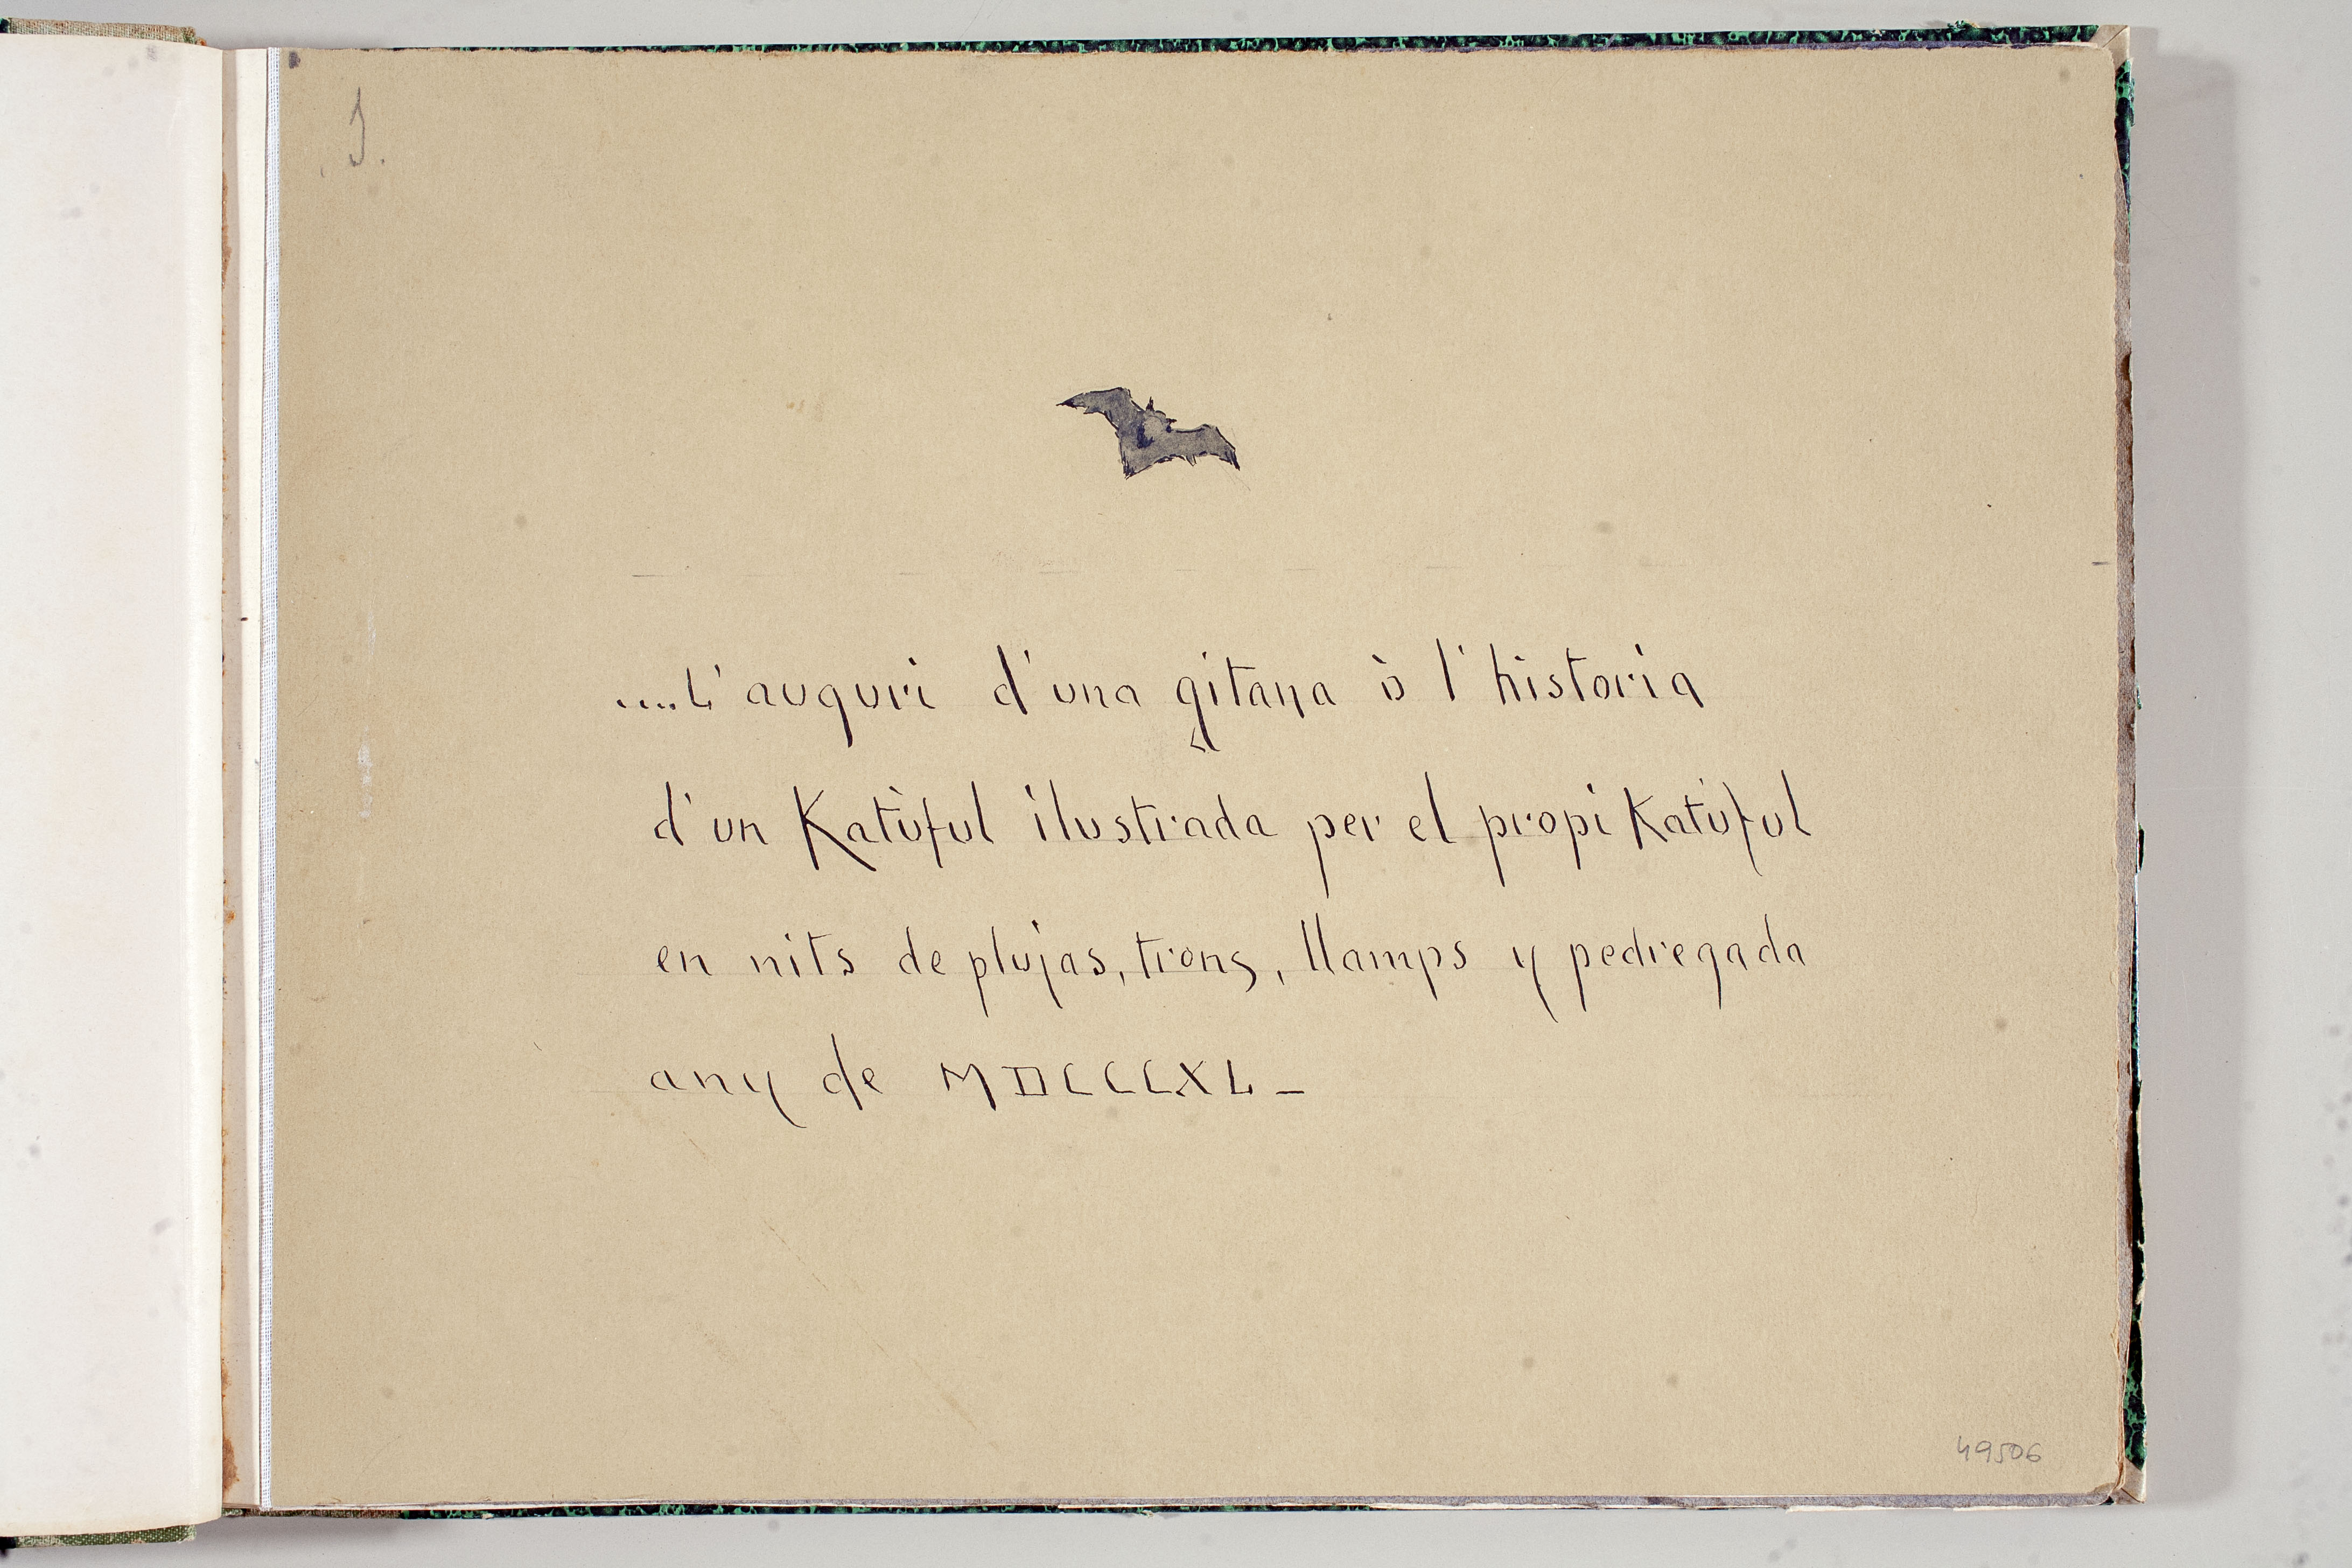 1.
....L'auguri d'una gitana ò l'historia
d'un Katùful ilustrada per el propi Katùful
en nits de plujas, trons, llamps y pedregada
any de MDCCCXL-
49506